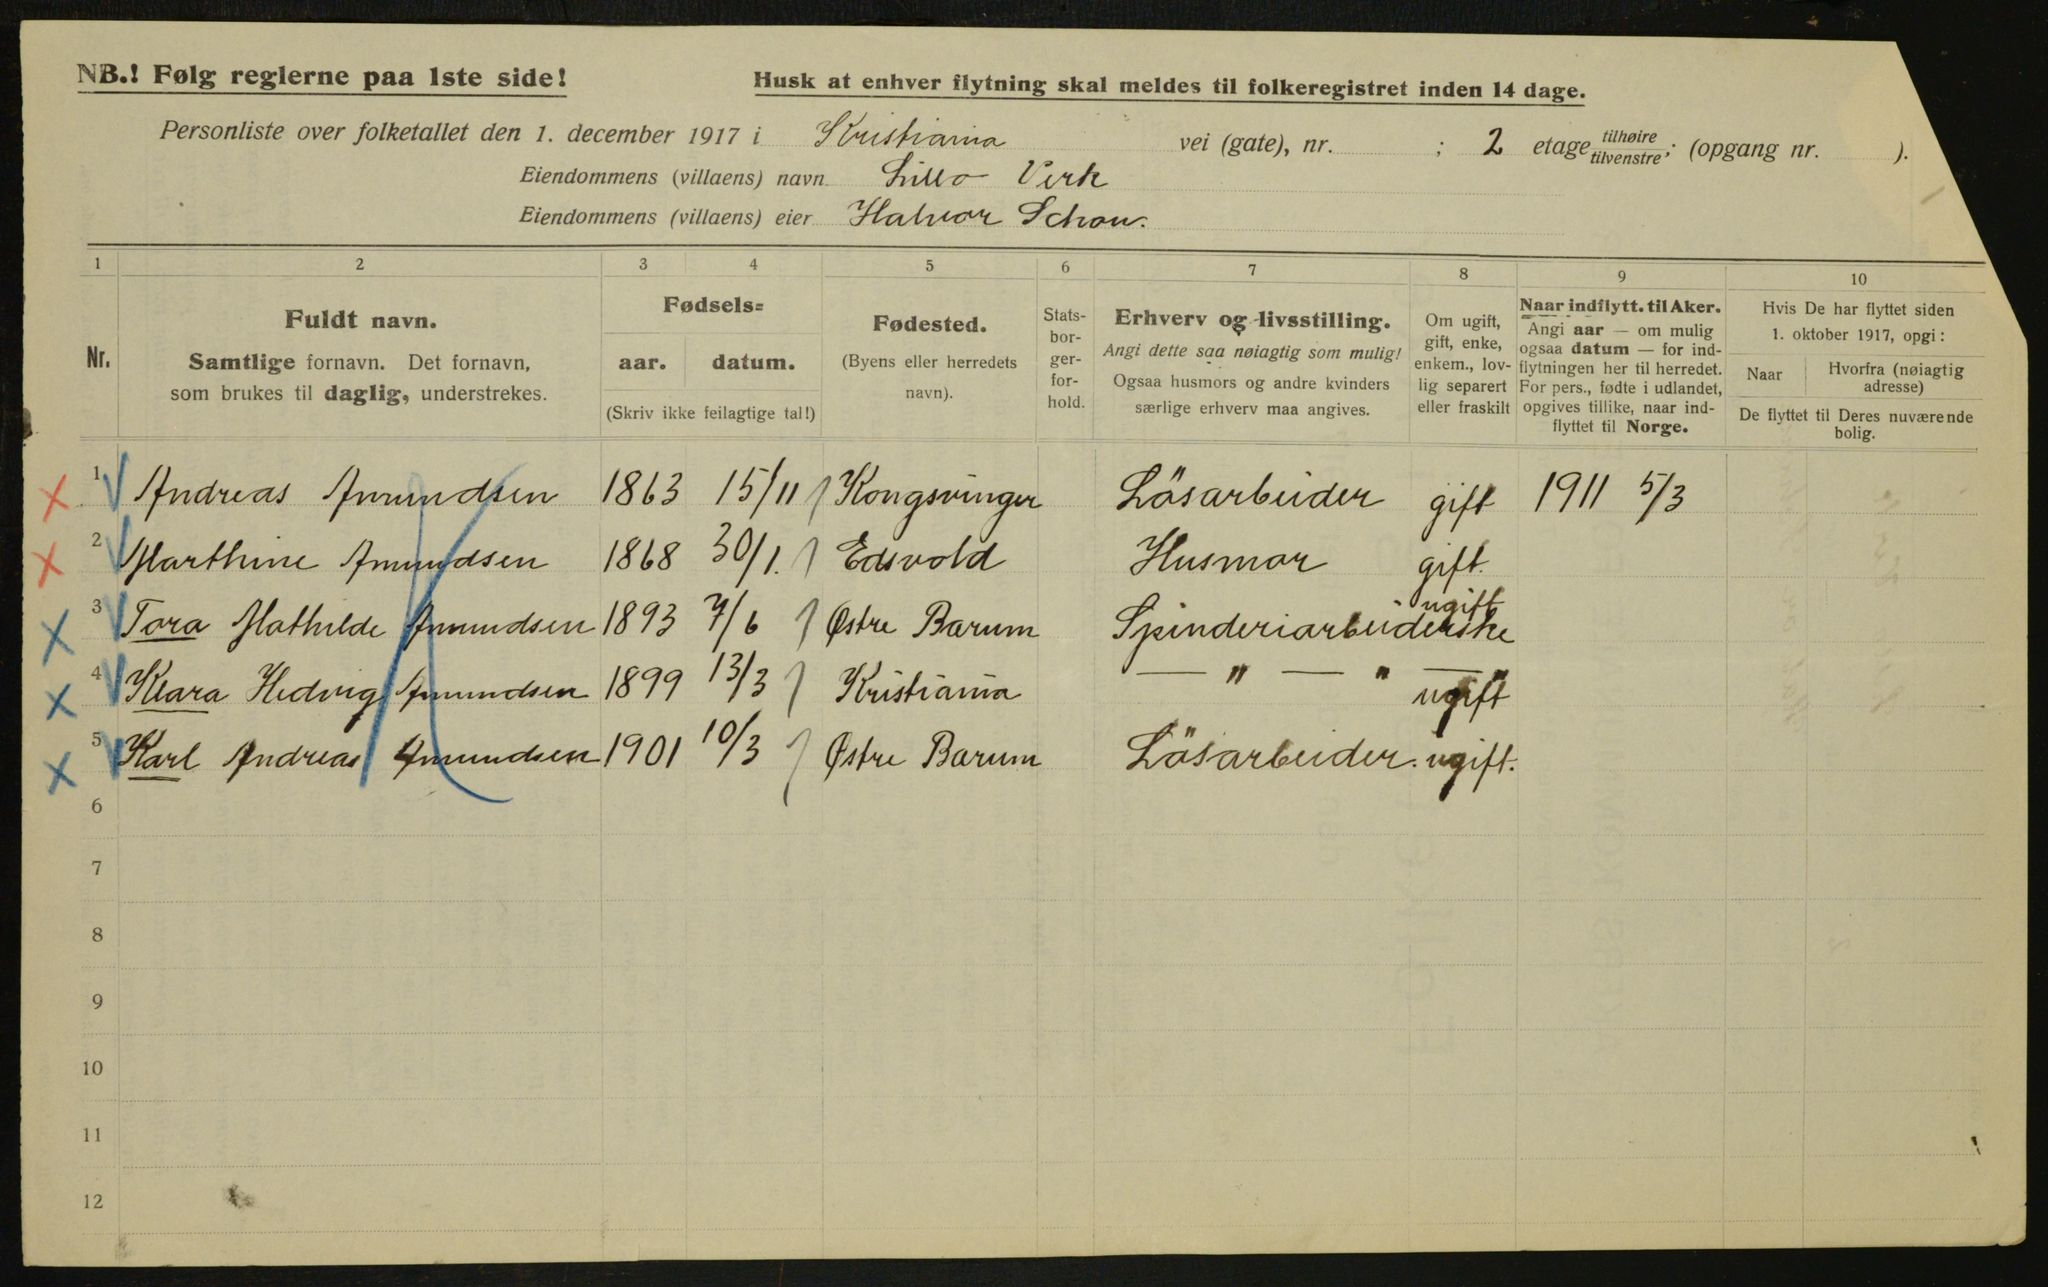 NB.! Følg reglerne paa 1ste side!
Husk at enhver flytning skal meldes til folkeregistret inden 14 dage.
Personliste over folketallet den 1. december 1917 i Kristiania vei (gate), nr. ; 2 etage tilhøire/tilvenstre; (opgang nr. ).
Eiendommens (villaens) navn Lillo Verk
Eiendommens (villaens) eier Halvor Schou.
1 2 3 4 5 6 7 8 9 10
Nr.
Fuldt navn.
Samtlige fornavn. Det fornavn,
som brukes til daglig, understrekes.
Fødsels=
aar. datum.
(Skriv ikke feilagtige tal!)
Fødested.
(Byens eller herredets
navn).
Stats-
bor-
ger-
for-
hold.
Erhverv og livsstilling.
Angi dette saa nøiagtig som mulig!
Ogsaa husmors og andre kvinders
særlige erhverv maa angives.
Om ugift,
gift, enke,
enkem., lov-
lig separert
eller fraskilt
Naar indflytt. til Aker.
Angi aar — om mulig
ogsaa datum — for ind-
flytningen her til herredet.
For pers., fødte i udlandet,
opgives tillike, naar ind-
flyttet til Norge.
Hvis De har flyttet siden
1. oktober 1917, opgi:
Naar
Hvorfra (nøiagtig
adresse)
De flyttet til Deres nuværende
bolig.
1 Andreas Amundsen 1863 15/11 Kongsvinger Lösarbeider gift 1911 5/3
2 Marthine Amundsen 1868 30/1. Edsvold Husmor gift.
3 Tora Mathilde Amundsen 1893 7/6 Østre Barum Spinderiarbeiderske ugift
4 Klara Hedvig Amundsen 1899 13/3 Kristiania — " — " — " ugift
5 Karl Andreas Amundsen 1901 10/3 Østre Barum Lösarbeider. ugift.
6
7
8
9
10
11
12